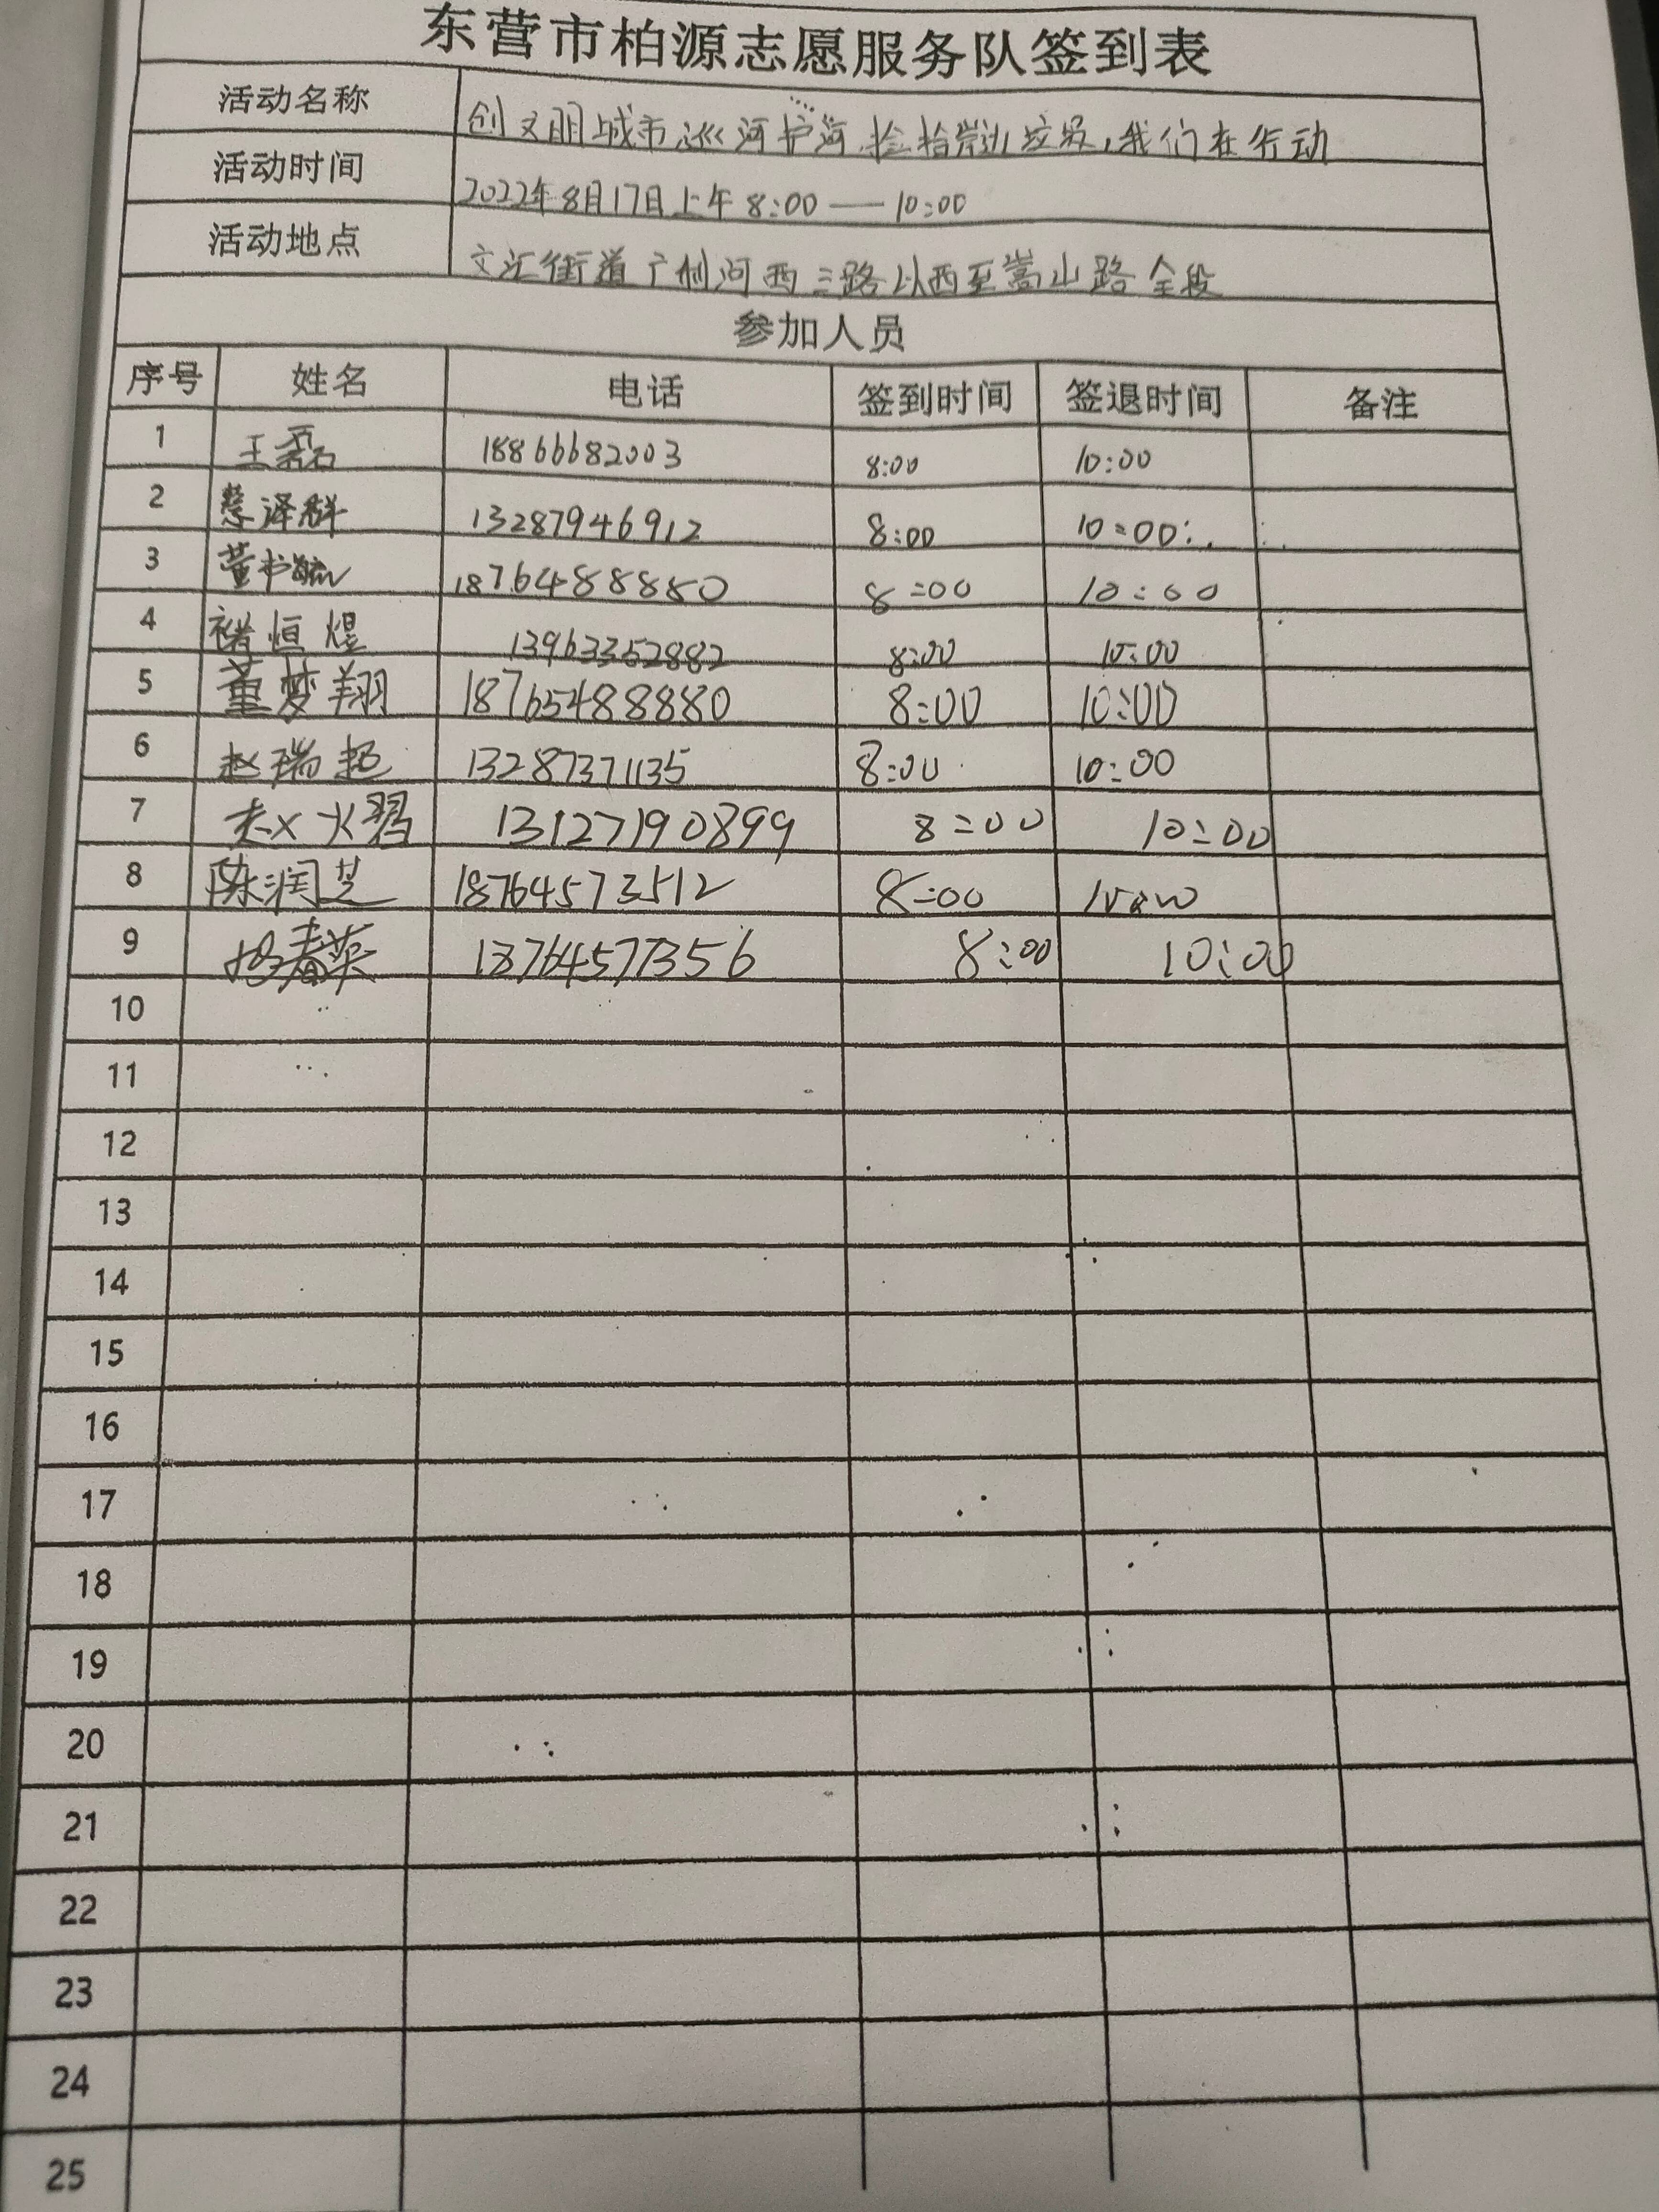 东营市柏源志愿服务队签到表
活动名称 创文明城市巡河护河捡拾垃圾,我们在行动
活动时间 2022年8月17日上午8:00——10:00
活动地点 文汇街道广利河西三路以西至嵩山路全段
参加人员
序号 姓名 电话 签到时间 签退时间 备注
1 王磊 18866682003 8:00 10:00
2 泽群 13287946912 8:00 10:00
3 董书毓 18764888880 8:00 10:00
4 褚恒煜 13963352882 8:00 10:00
5 董梦翔 18765488880 8:00 10:00
6 赵瑞超 13287371135 8:00 10:00
7 赵熠 13127190899 8:00 10:00
8 陈润芝 18764573512 8:00 10:00
9 杨春英 18764577356 8:00 10:00
10
11
12
13
14
15
16
17
18
19
20
21
22
23
24
25